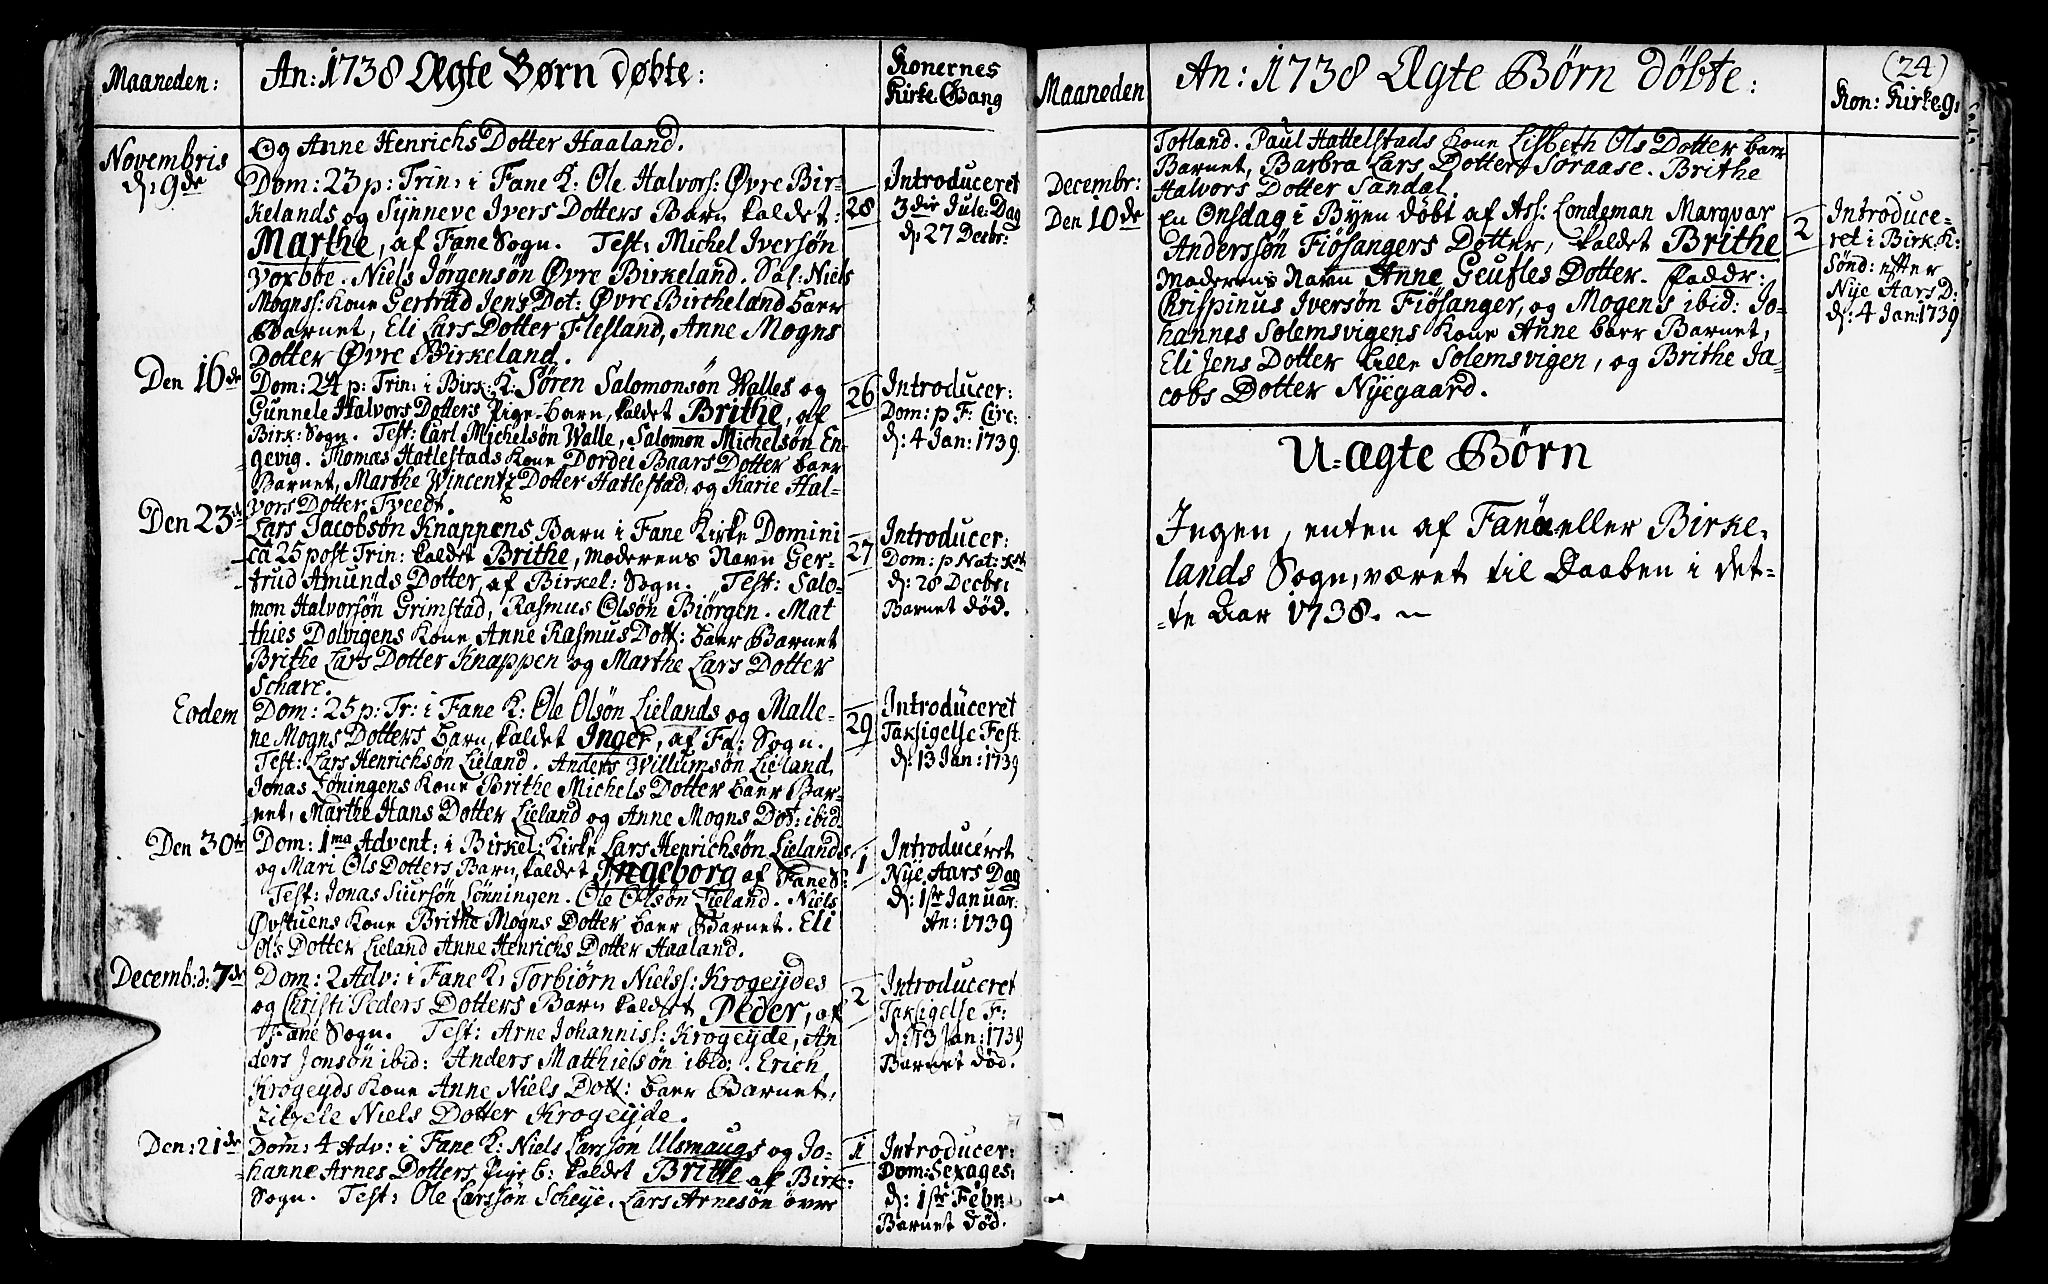 Maaneden:
An: 1738 Ægte Børn døbte:
Konernes
Kirke Gang
Og Anne Henrichs Dotter Haaland.
Novembris
d: 9de
Dom: 23 p: Trin: i Fane K: Ole Halvors: Øvre Bir-
kelands og Synneve Ivers Dotters Barn kaldet:
Marthe, af Fane Sogn. Test: Michel Iversøn
Voxbbe. Niels Jørgensøn Øvre Birkeland. Sal: Niels
Mognss: Kone Gertrud Jens Dot: Øvre Bircheland baer
Barnet, Eli Lars Dotter Flesland, Anne Mogns
Dotter Øvre Birkeland.
28
Introduceret
3die Jule: Dag
d. 27 Decbr:
Den 16de
Dom: 24 p: Trin: i Birk: K: Søren Salomonsøn Walles og
Gunnele Halvors Dotters Pige-barn, kaldet Brithe, af
Birk: Sogn. Test: Carl Michelsøn Walle, Salomon Michelsøn En-
gevig. Thomas Hatlestads Kone Dordei Baars Dotter baer
Barnet, Marthe Wincentz Dotter Hatlestad, og Karie Hal-
vors Dotter Tveedt.
26
Introducer:
Dom: p F: Circ:
d: 4 Jan: 1739
Den 23de
Lars Jacobsøn Knappens Barn i Fane Kirke Domini
ca 25 post Trin: kaldet Brithe, moderens Navn Ger-
trud Amunds Dotter, af Birkel: Sogn. Test: Salo-
mon Halvorsøn Grimstad, Rasmus Olsøn Biørgen. Mat
thies Dolvigens Kone Anne Rasmus Dott: baer Barnet
Brithe Lars Dotter Knappen og Marthe Lars Dotter
Schare.
27
Introducer:
Dom: p Nat: Xsti
d: 28 Decbr:
Barnet død.
Eodem
Dom: 25 p: Tr: i Fane K: Ole Olsøn Lielands og Malle-
ne Mogns Dotters barn, kaldet Inger, af Fa: Sogn.
Test: Lars Henrichsøn Lieland. Anders Willumsøn Lieland,
Jonas Søningens Kone Brithe Michels Dotter baer Bar-
net, Marthe Hans Dotter Lieland og Anne Mogns Dot: ibid.
29
Introduceret
Taksigelse Fest
d: 13 Jan: 1739
Den 30te
Dom: 1ma Advent: i Birkel: Kirke Lars Henrichsøn Lielandes
og Mari Ols Dotters Barn, kaldet Ingeborg af Fane S:
Test: Jonas Siursøn Sønningen. Ole Olsøn Lieland. Niels
Øvstuens Kone Brithe Mogns Dotter baer Barnet. Eli
Ols Dotter Lieland Anne Henrichs Dotter Haaland.
1
Introduceret
Nye Aars Dag
d: 1ste Januar:
An: 1739
Decemb: d: 7de
Dom: 2 Adv: i Fane K: Torbiørn Nielss: Krogeydes
og Christi Peders Dotters Barn kaldet Peder, af
Fane Sogn. Test: Arne Johanniss: Krogeyde, An
ders Jonsøn ibid: Anders Matthielsøn ibid: Erich
Krogeyds Kone Anne Niels Dott: baer Barnet,
Zitzele Niels Dotter Krogeyde.
2
Introduceret
Taksigelse F:
d: 13 Jan: 1739
Barnet død.
Den: 21de
Dom: 4 Adv: i Fane K: Niels Larssøn Ulsmaugs og Jo-
hanne Arnes Dotters Pige b: kaldet Brithe af Birk:
Sogn. Test: Ole Larssøn Scheye. Lars Arnesøn øvre
1
Introducer:
Dom: Sexages:
d: 1ste Febr:
Barnet død.
Maaneden
An: 1738 Ægte Børn døbte:
(24)
Kon: Kirkeg:
Totland. Paul Hattelstads Kone Lisbeth Ols Dotter baer
Barnet, Barbra Lars Dotter Soraase. Brithe
Halvors Dotter Sandal.
Decembr:
Den 10de
En Onsdag i Byen døbt af Ass: Londeman Marqvar
Anderssøn Fiøsangers Dotter, kaldet Brithe
Moderens Navn Anne Geufles Dotter. Faddr:
Chrispinus Iversøn Fiøsanger, og Mogens ibid: Jo-
hannes Solemsvigens Kone Anne baer Barnet,
Eli Jens Dotter Lille Solemsvigen, og Brithe Ja-
cobs Dotter Nyegaard.
2
Introduce-
ret i Birk. K:
Sønd: efter
Nye Aars D:
d: 4 Jan: 1739
U-ægte Børn
Ingen, enten af Fanø eller Birke-
lands Sogn, været til Daaben i det-
te Aar 1738.